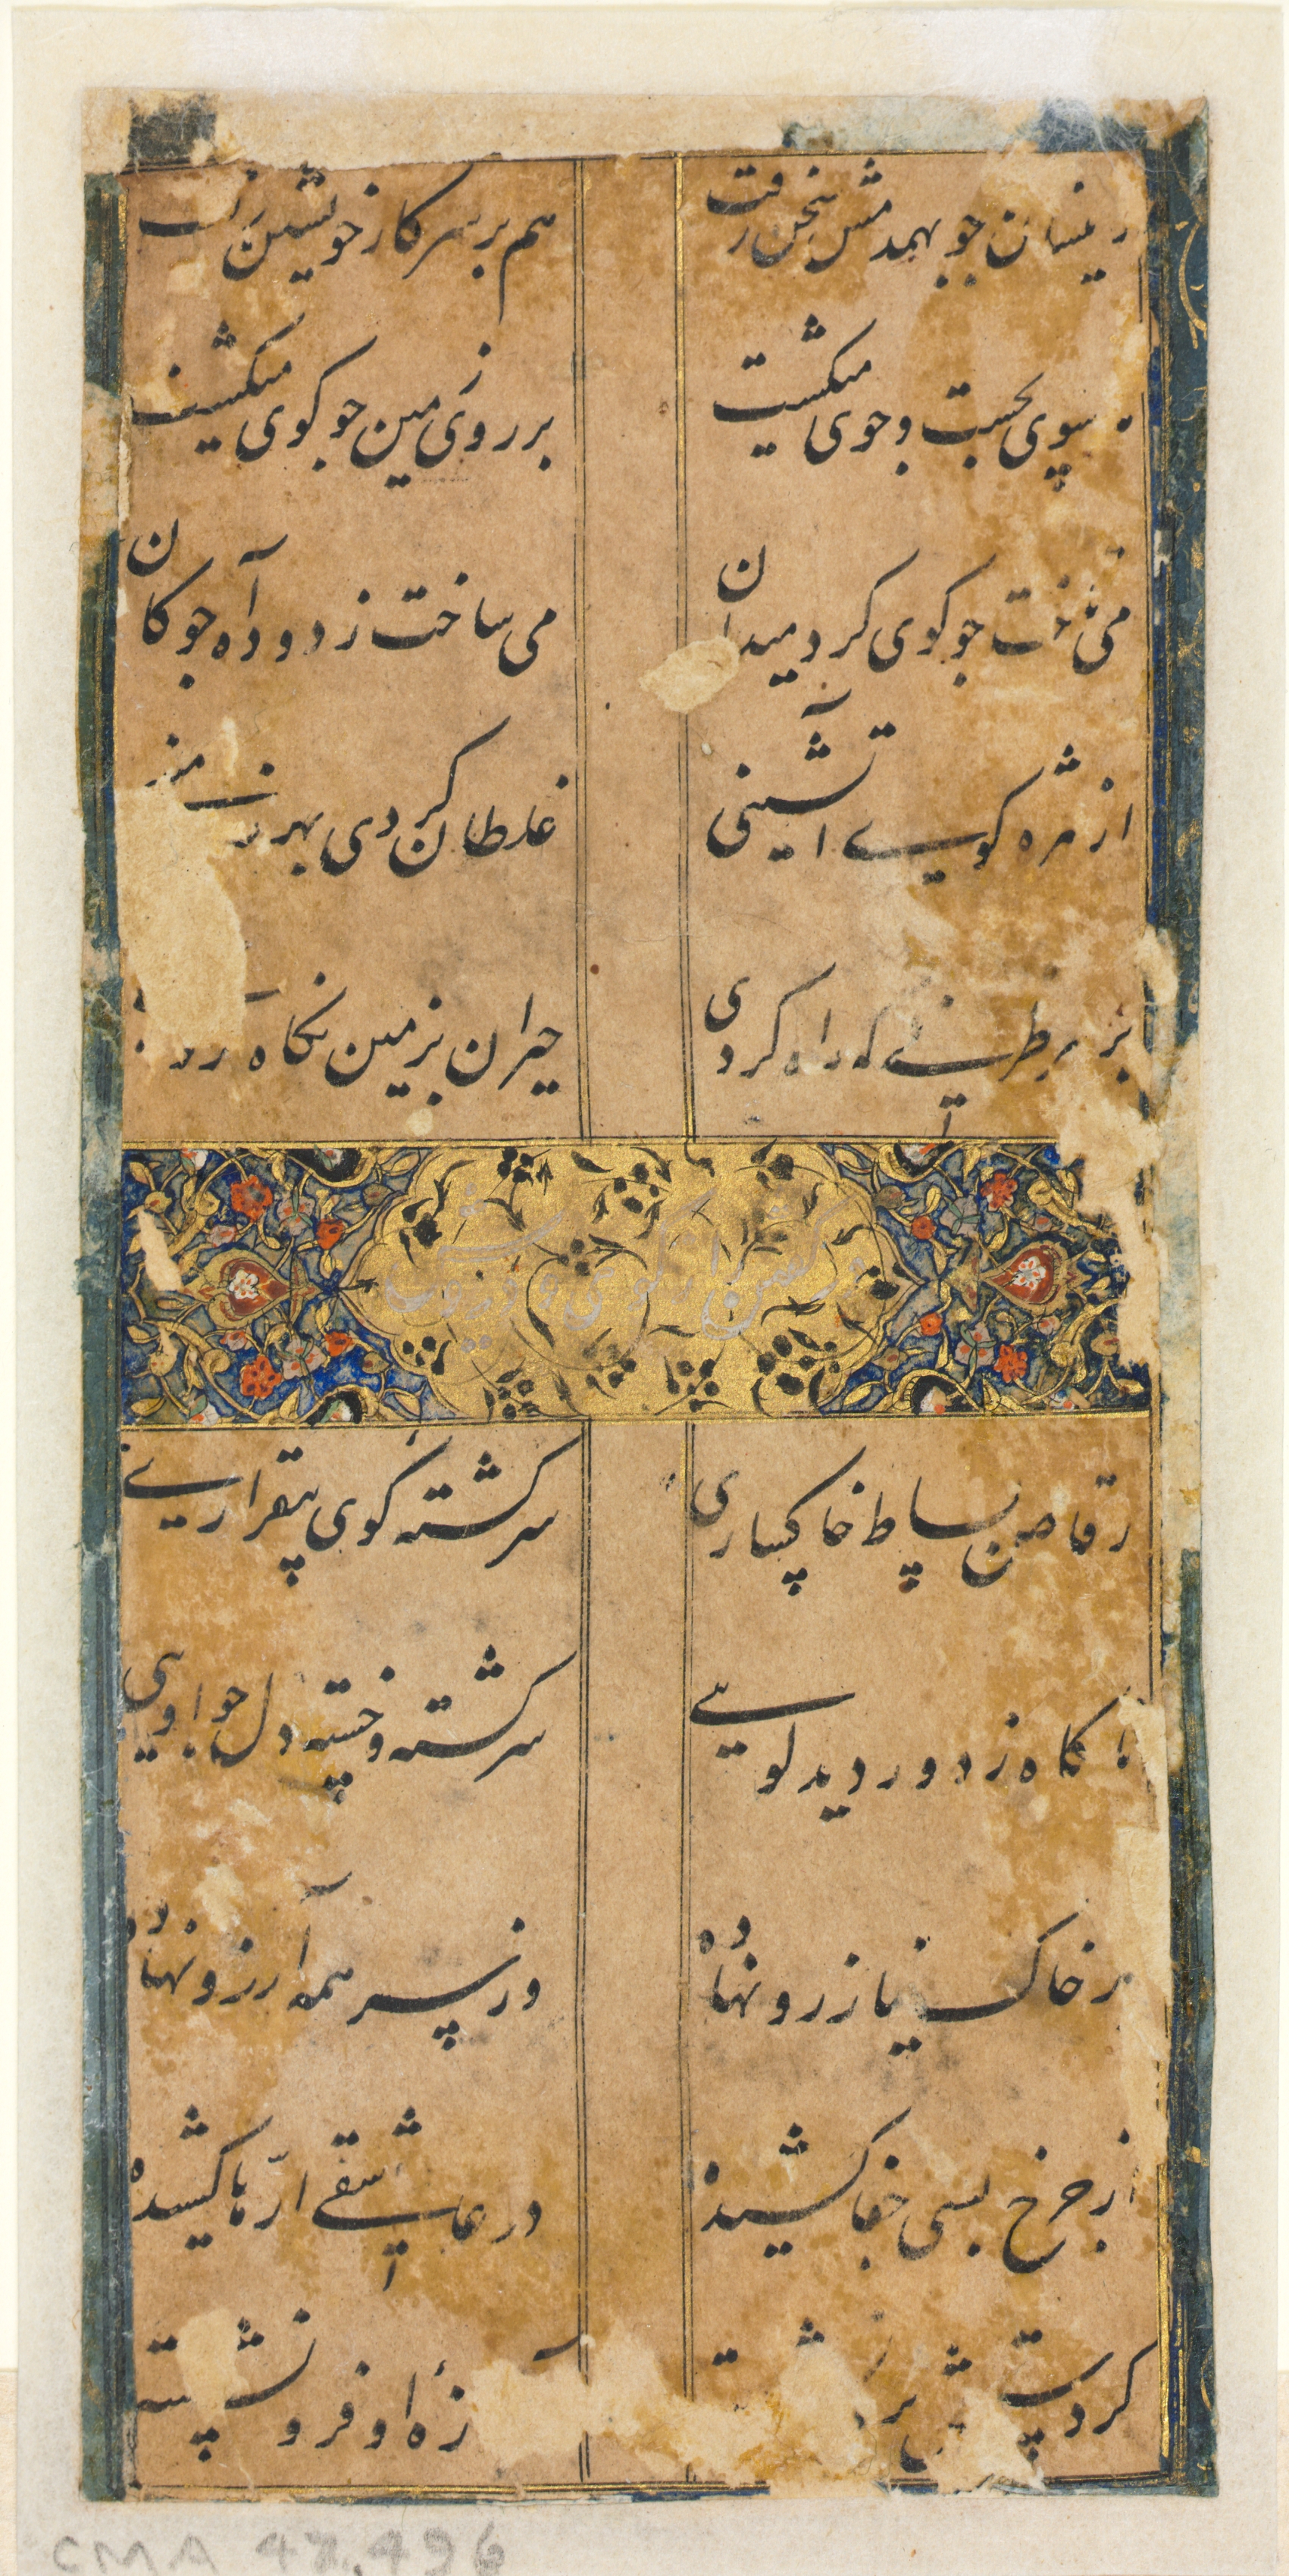 زینسان جو بهمدمش سخن رفت
هم بر سر کار خویشتن رفت
بپوی بجست و جوی میکشت
بر روی زمین جو کوی میکشت
می تاخت جو کوی کرد میدان
می ساخت ز دود آه جوکان
از مژه کویی آتشینی
غلطان کردی بهر زمینی
بر هر طرفی که راه کردی
حیران بزمین نکاه
رقاص بساط خاکساری
سرکشته کوی بیقراری
ناکاه ز دور دید لویی
سرکشته و خسته دل جو اویی
بر خاک نیاز رو نهاده
وز سر همه آرزو نهاده
از جرخ بسی جفا کشیده
در عاشقی ارّها کشیده
کرد
زه او فرو نشسته
CMA 47.496